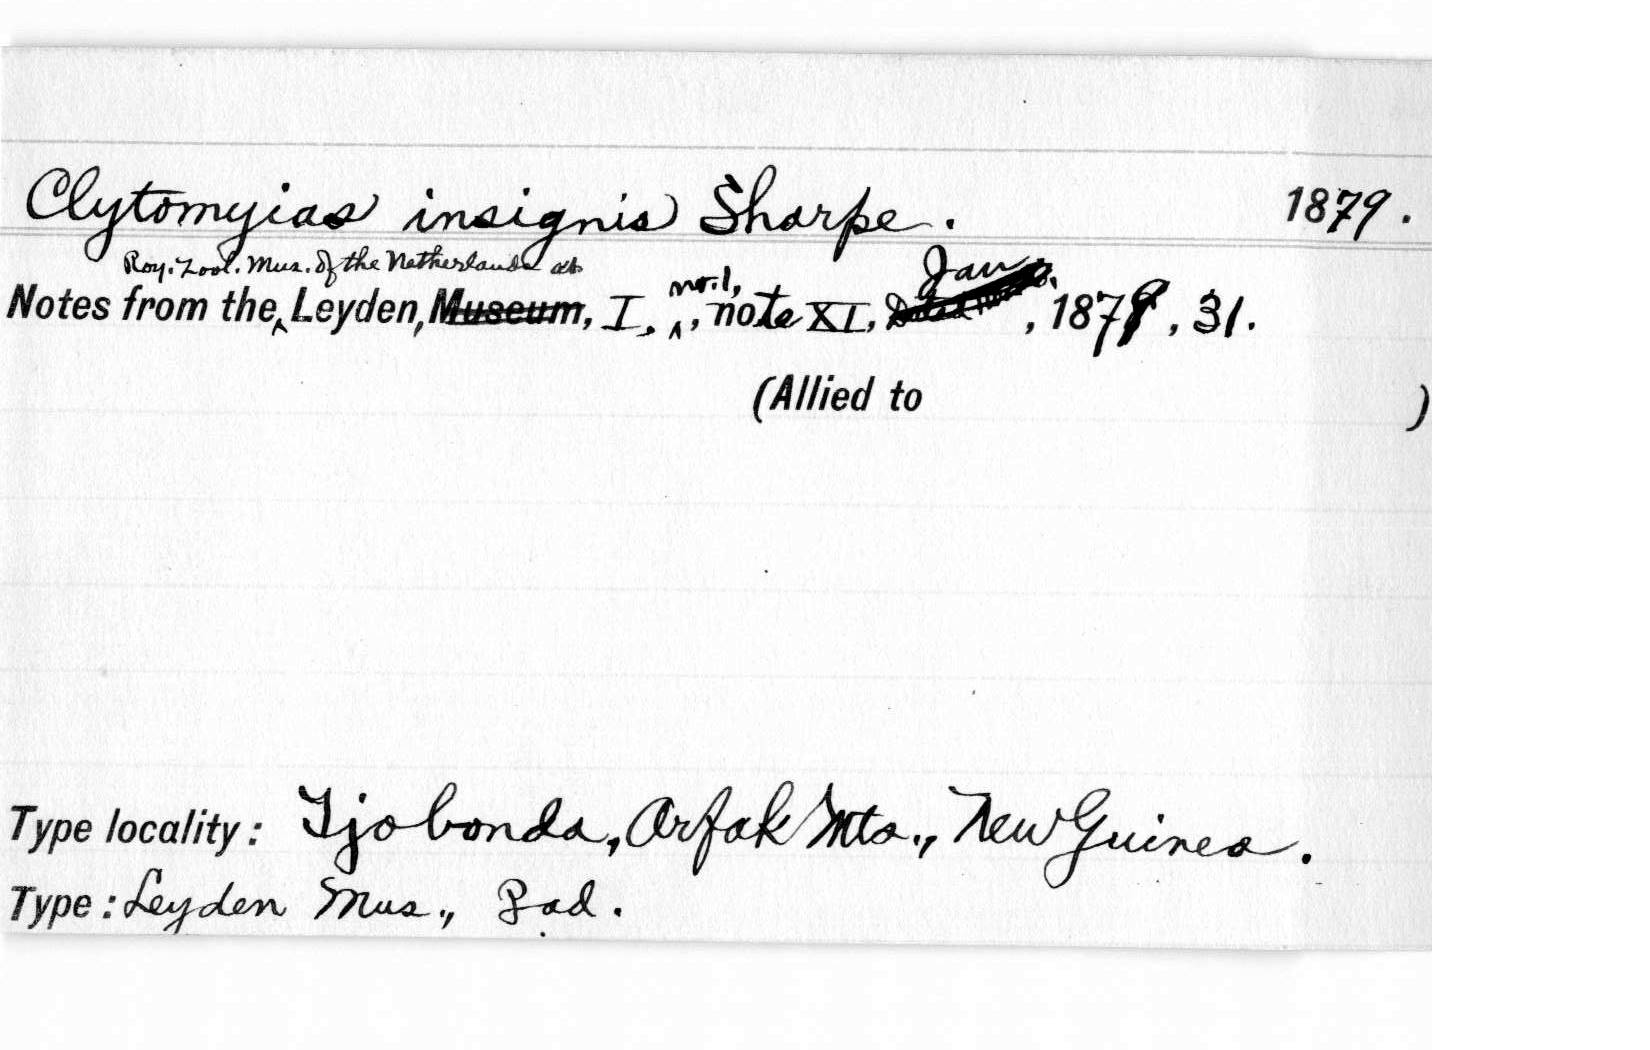 Clytomyias insignis Sharpe. 1879.
Roy. Zool. Mus. of the Netherlands at
Notes from the ^ Leyden, Museum, I, ^ no. 1, , note XI, Jan , 1879, 31.
(Allied to )
Type locality: Tjobonda, Arfak Mts., New Guinea.
Type: Leyden Mus., ad.